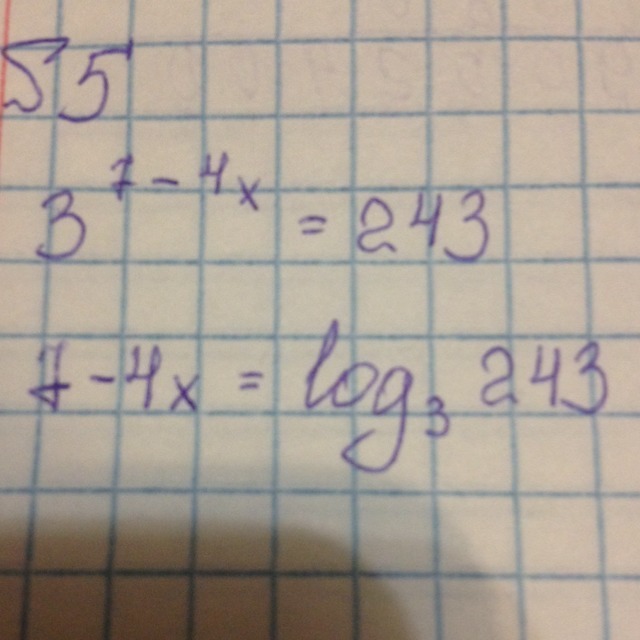 55
3^{7-4x} = 243
7-4x = log₃ 243